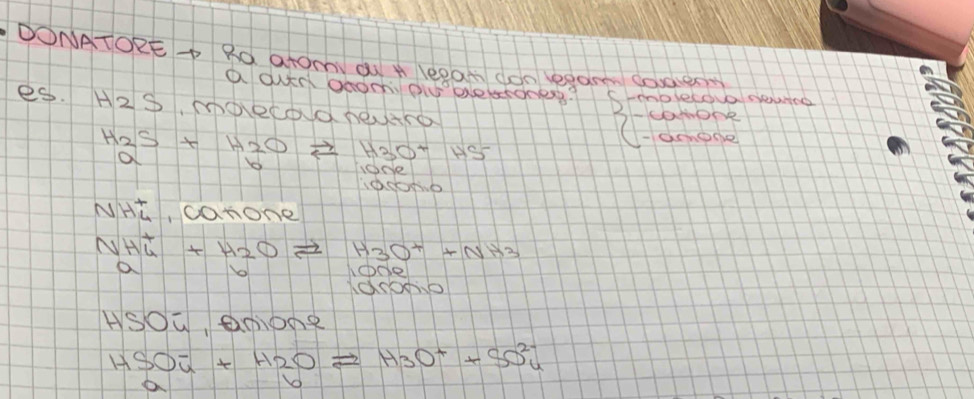 • DONATORE → Ha atomi di H legati con legami covalenti
a altri atomi più elettroneg. { - molecola neutra
- catione
- anione
es. H2S, molecola neutra
H2S + H2O ⇄ H3O⁺ HS⁻
a b ione
idronio
NH4⁺, catione
NH4⁺ + H2O ⇄ H3O⁺ + NH3
a b ione
idronio
HSO4⁻, anione
HSO4⁻ + H2O ⇄ H3O⁺ + SO4²⁻
a b